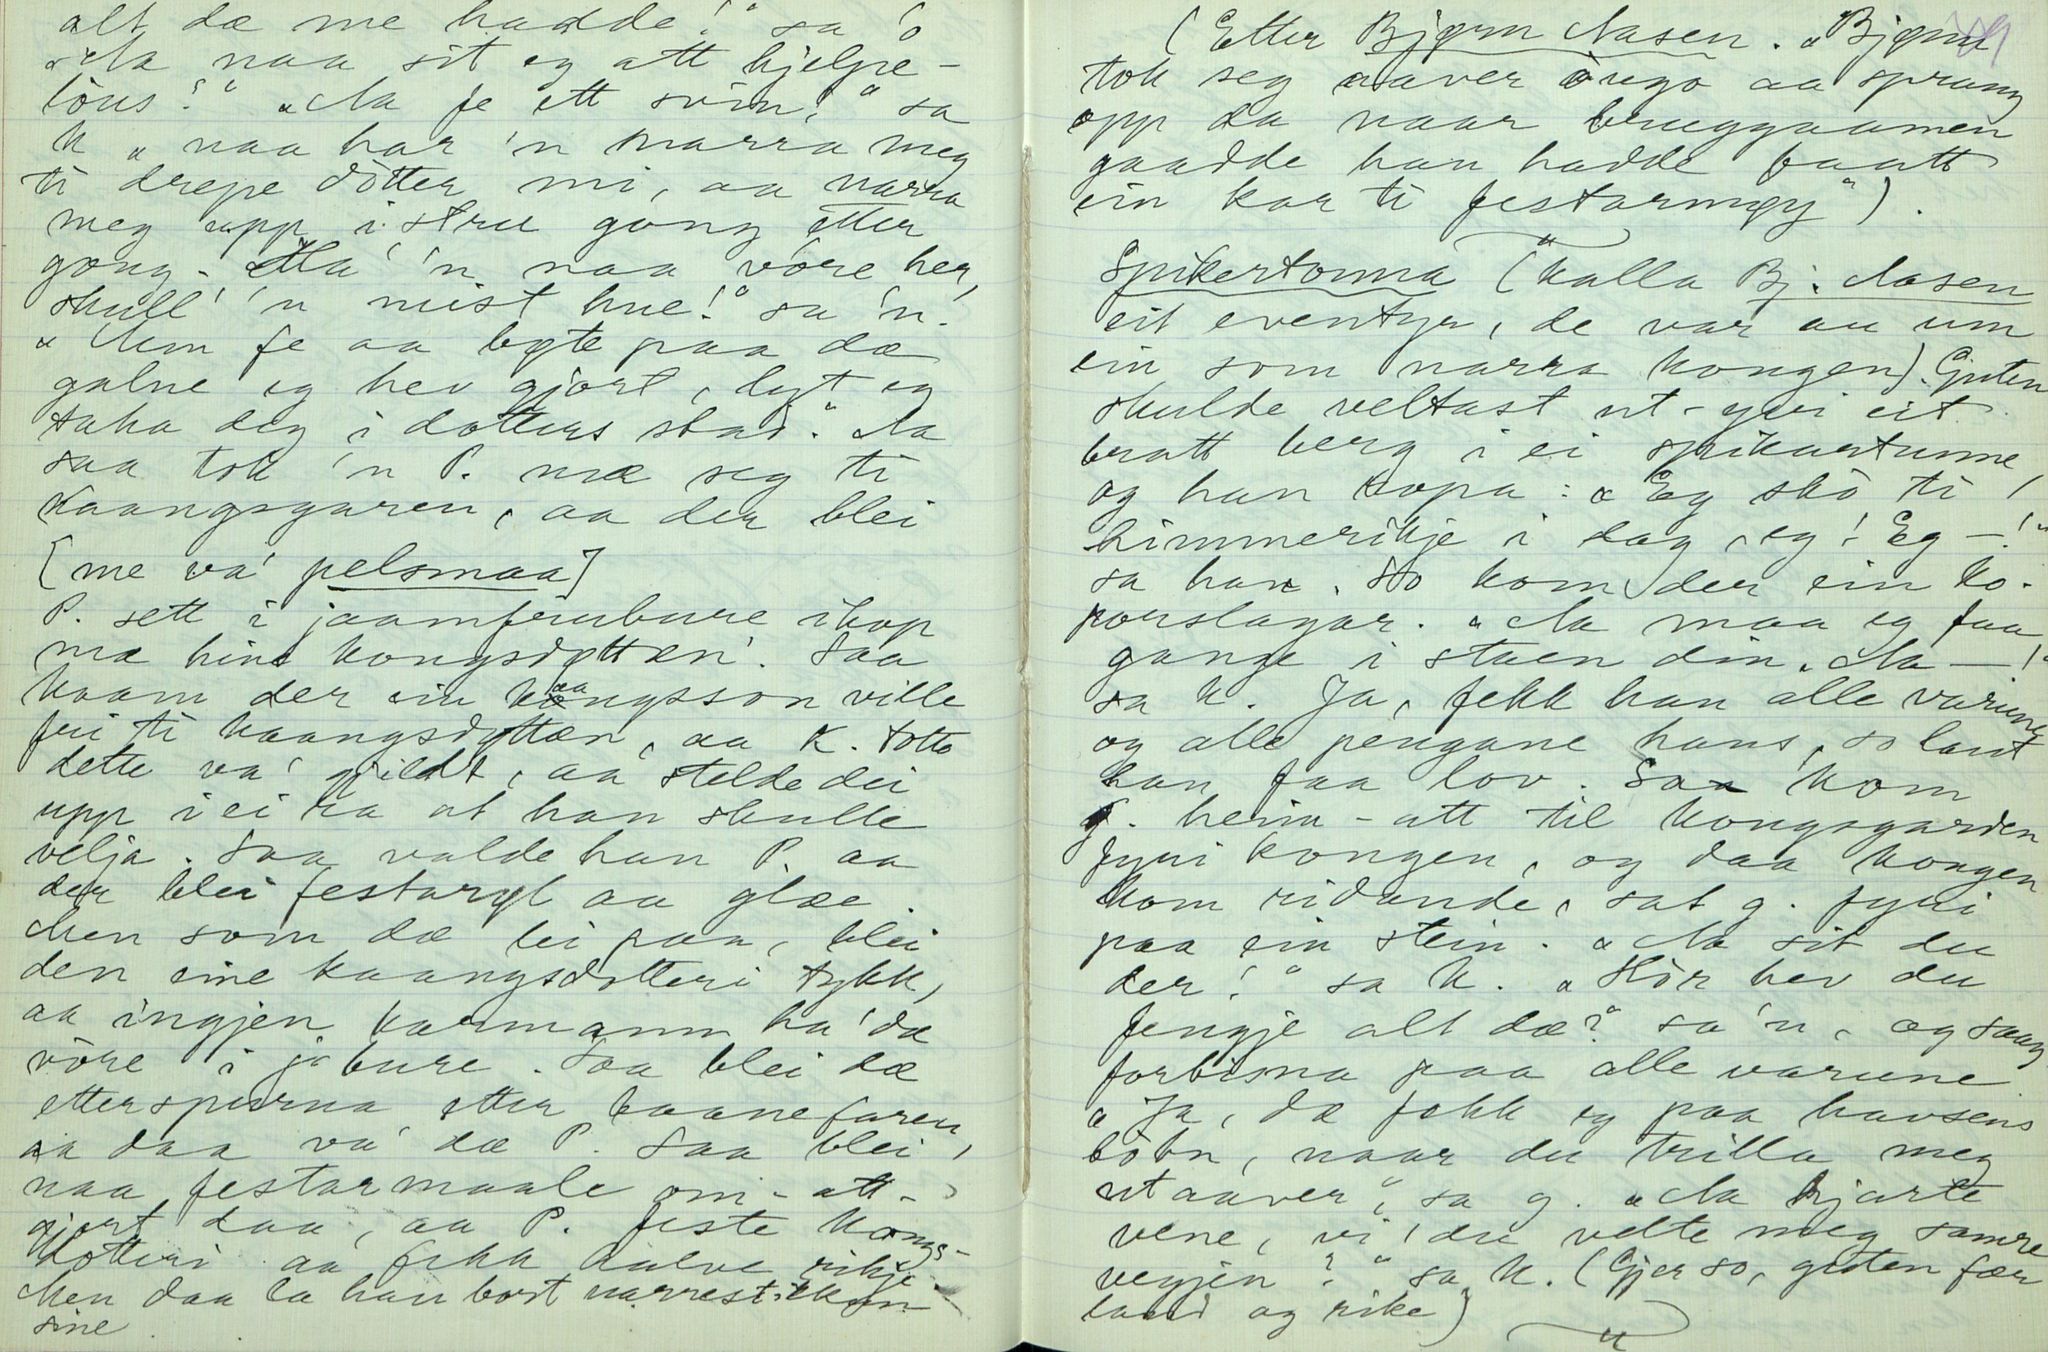 alt dæ me hadde!" sa 'o
"Aa naa sit eg att hjelpe-
löus?" "Aa fe ett svin!" sa
K "naa har 'n narra meg
ti drepe dotter mi, aa narra
meg upp i stru gong etter
gong. Ha' 'n naa vöre her,
skull' 'n mist hue!" sa 'n.
"Men fe aa bøte paa dæ
galne eg hev gjort, lyt eg
taka deg i dotters stad." Aa
saa tok 'n P. mæ seg ti
Kaangsgaren, aa der blei
[me va' pelsmaa]
P. sett i jaamfrubure ihop
mæ hine kongsdøttæn'. Saa
kaam der ein kaangsson ville
fri ti kaangsdøttæn, aa K. totte
dette va' gildt, aa stelde dei
upp i ei ra at han skulle
velja. Saa valde han P. aa
der blei festarøl aa glæe.
Men som dæ lei paa, blei
den eine kaangsdotteri tykk,
aa ingjen karmann ha' dæ
vöre i j bure. Saa blei dæ
etterspurna etter baanefaren,
aa daa va' dæ P. Saa blei
naa festarmaale om-att-
gjort daa, aa P. feste kongs-
dotteri aa fekk halve rikje.
Men daa la han bort narrestikkun
sine.
(Etter Bjørn Aasen. "Bjønn
tok seg aaver öugo aa sprang
opp da naar bruggaamen
gaadde han hadde faatt
ein kar ti festarmøy").
Spikertonna (kalla Bj. Aasen
eit eventyr, de var au um
ein som narra kongen). Guten
skulde veltast ut-yvi eit
bratt berg i ei spikartunne,
og han ropa: "Eg skò ti
himmerikje i dag, eg! Eg —!"
sa han. So kom der ein ko-
parslagar. "Aa maa eg faa
gange i staen din. Aa —!"
sa K. Ja, fekk han alle varune
og alle pengane hans, so laut
han faa lov. Saa kom
g. heim-att til kongsgarden
fyri kongen, og daa kongen
kom ridande, sat g. fyri
paa ein stein. "Aa sit du
der!" sa K. "Hòr hev du
fengje alt dæ?" sa 'n, og saag
forbisna paa alle varune
"Ja, dæ fekk eg paa havsens
bòtn, naar du trilla meg
utaaver", sa g. "Aa hjarte
vene, vi' du velte meg samre
vegjen?" sa K. (Gjer so, guten fær
land og rike)